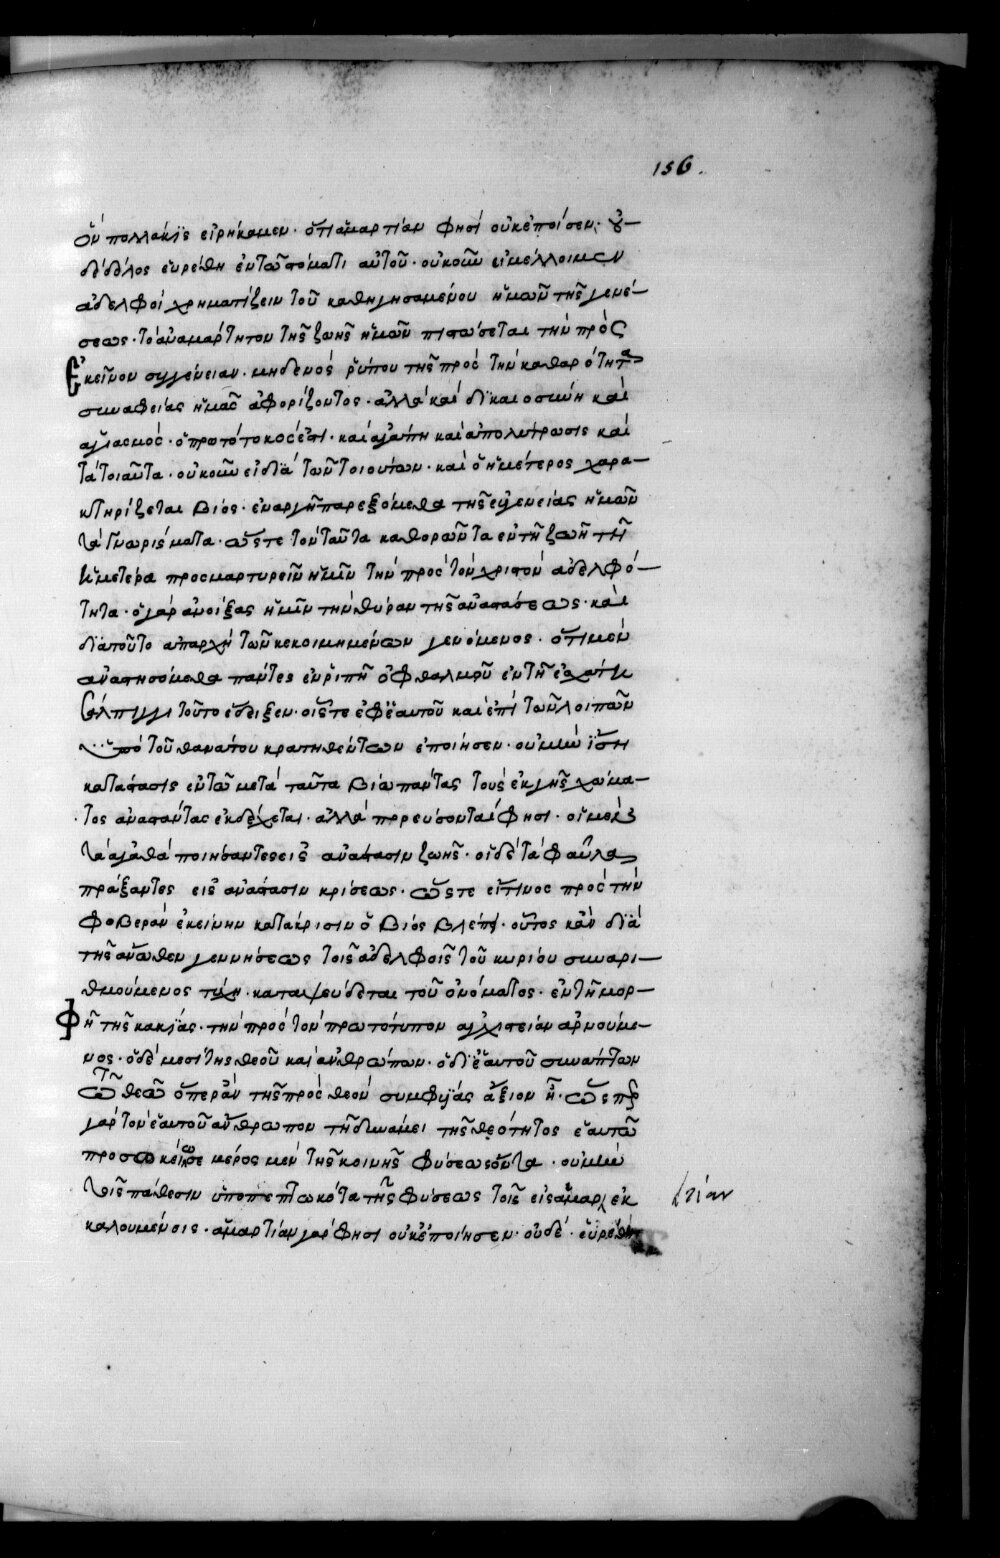 156.
ὃν πολλάκις εἰρήκαμεν· ὅτι ἁμαρτίαν φησὶ οὐκ ἐποίσεν· οὐ-
δὲ δόλος εὑρέθη ἐν τῶ στόματι αὐτοῦ· οὐκοῦν εἰ μέλλοιμεν
ἀδελφοὶ χρηματίζειν τοῦ καθηγησαμένου ἡμῶν τῆς γενέ-
σεως· τὸ ἀναμάρτητον τῆς ζωῆς ἡμῶν πιστώσεται τὴν πρὸς
ἐκεῖνον συγγένειαν· μηδενὸς ῥύπου τῆς πρὸς τὴν καθαρότητα
συναφείας ἡμᾶς ἀφορίζοντος· ἀλλὰ καὶ δικαιοσύνη καὶ
ἁγιασμὸς· ὁ πρωτότοκός ἐστι· καὶ ἀγάπη καὶ ἀπολύτρωσις καὶ
τὰ τοιαῦτα· οὐκοῦν εἰ διὰ τῶν τοιούτων· καὶ ὁ ἡμέτερος χαρα-
κτηρίζεται βίος· ἐναργῆ παρεξόμεθα τῆς εὐγενείας ἡμῶν
τὰ γνωρίσματα· ὥστε τὸν ταῦτα καθορῶντα ἐν τῆ ζωῆ τῆ
ἡμετέρα προσμαρτυρεῖν ἡμῖν τὴν πρὸς τὸν χριστὸν ἀδελφό-
τητα· ὁ γὰρ ἀνοίξας ἡμῖν τὴν θύραν τῆς ἀναστάσεως· καὶ
διατοῦτο ἀπαρχὴ τῶν κεκοιμημένων γενόμενος· ὅτι μὲν
ἀναστησόμεθα πάντες ἐν ῥιπῆ ὀφθαλμοῦ ἐν τῆ ἐσχάτη
σάλπιγγι τοῦτο ἔδειξεν· οἷστε ἐφ' ἑαυτοῦ καὶ ἐπὶ τῶν λοιπῶν
ὑπὸ τοῦ θανάτου κρατηθέντων ἐποίησεν· οὐ μὴν ἴση
κατάστασις ἐν τῶ μετὰ ταῦτα βίω πάντας τοὺς ἐκ γῆς χώμα-
τος ἀναστάντας ἐκδέχεται· ἀλλὰ πορεύσονται φησι· οἱ μὲν
τὰ ἀγαθὰ ποιήσαντες εἰς ἀνάστασιν ζωῆς· οἱ δὲ τὰ φαῦλα
πράξαντες εἰς ἀνάστασιν κρίσεως· ὥστε εἴ τινος πρὸς τὴν
φοβερὰν ἐκείνην κατάκρισιν ὁ βίος βλέπει· οὗτος κἂν διὰ
τῆς ἄνωθεν γεννήσεως τοῖς ἀδελφοῖς τοῦ κυρίου συναρι-
θμούμενος τύχη· καταψεύδεται τοῦ ὀνόματος· ἐν τῆ μορ-
φῆ τῆς κακίας· τὴν πρὸς τὸν πρωτότυπον ἀγχιστείαν ἀρνούμε-
νος· ὁ δὲ μεσίτης θεοῦ καὶ ἀνθρώπων· ὁ δι' ἑαυτοῦ συνάπτων
τῶ θεῶ ὅπερ ἂν τῆς πρὸς θεὸν συμφυΐας ἄξιον ᾖ· ὥσπερ
γὰρ τὸν ἑαυτοῦ ἄνθρωπον τῆ δυνάμει τῆς θεότητος ἑαυτῶ
προσωκείωσε μέρος μὲν τῆς κοινῆς φύσεως ὄντα· οὐ μὴν
τοῖς πάθεσιν ὑποπεπτωκότα τῆς φύσεως τοῖς εἰς ἁμαρ τίαν ἐκ
καλουμένοις· ἁμαρτίαν γάρ φησι οὐκ ἐποίησεν· οὐδὲ· εὑρέθη